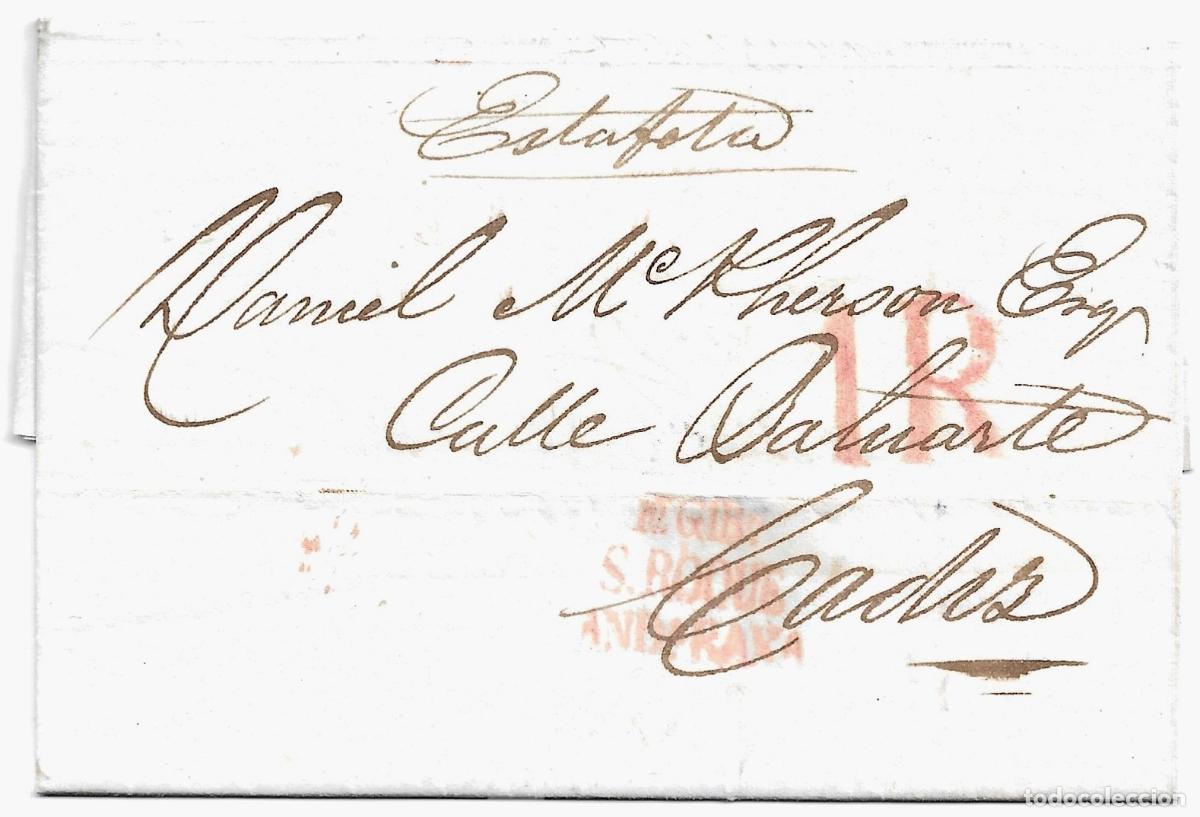 Estafeta
Daniel Mc Pherson Esqr
1R
Calle Baluarte
Cadiz
S. ROQUE
ANDA BAXA
todocoleccion